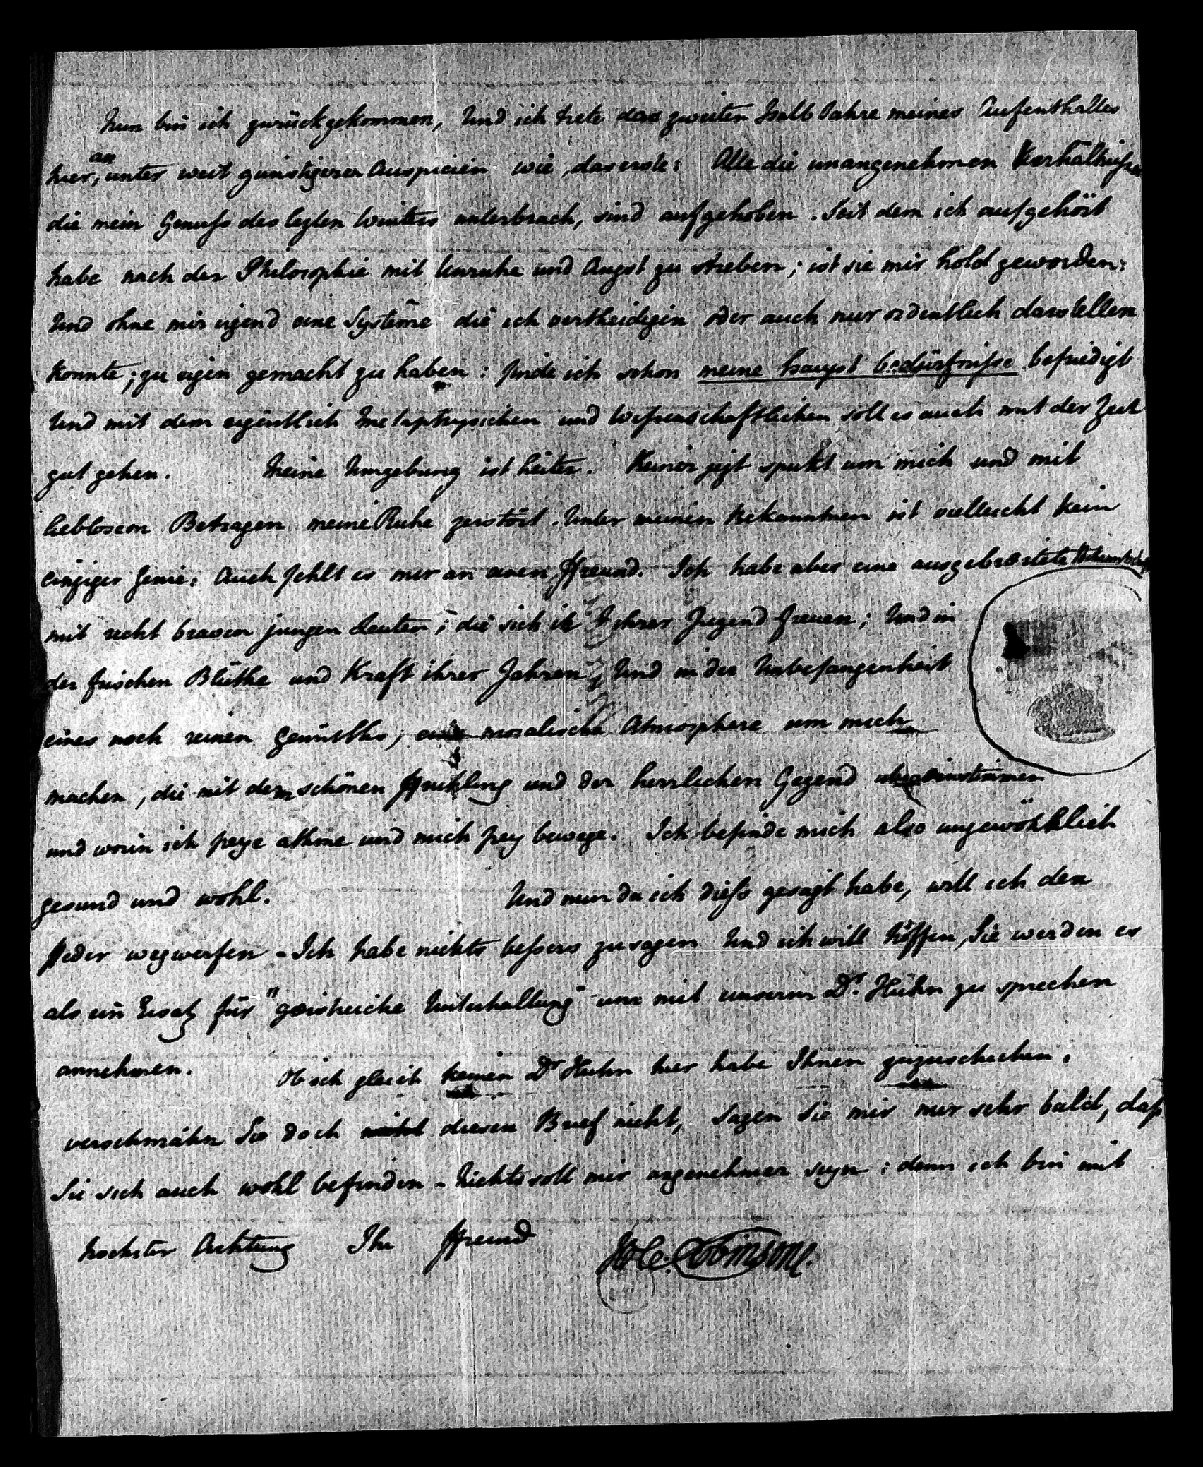 Nun bin ich zurückgekommen, Und ich trete das zweiten Halb Jahre meines Aufenthaltes
hier, an unter weit günstigeren Auspicien wie das erste: Alle die unangenehmen Verhältnisse
die mein Genuss des lezten Winters unterbrach, sind aufgehoben. Seit dem ich aufgehört
habe nach der Philosophie mit Unruhe und Angst zu streben; ist sie mir hold geworden:
Und ohne mir irgend eine Systeme die ich vertheidigen oder auch nur ordentlich darstellen
konnte; zu eigen gemacht zu haben: finde ich schon meine haupt bedürfnisse befriedigt
Und mit dem eigentlich Metaphysischen und Wissenschaftlichen soll es auch mit der Zeit
gut gehen. Meine Umgebung ist heiter. Keiner jezt spukt um mich und mit
lieblosem Betragen meine Ruhe zerstört. Unter meinen Bekannten ist vielleicht kein
einziger Genie: Auch fehlt es mir an einen Freund. Ich habe aber eine ausgebreitete
mit recht braven jungen Leuten, die sich ihrer Jugend freuen; Und in
der frischen Blüthe und Kraft ihrer Jahren, Und in der Unbefangenheit
eines noch reinen Gemüths, eine moralische Atmosphere um mich
machen, die mit dem schönen Frühling und der herrlichen Gegend übereinstimmen
und worin ich freye athme und mich frey bewege. Ich befinde mich also ungewöhhlich
gesund und wohl. Und nun da ich diess gesagt habe, will ich den
Feder wegwerfen - Ich habe nichts bessers zu sagen Und ich will hoffen, Sie werden es
als ein Ersatz für "geistreiche Unterhaltung" um mit unserm Dr. Huhn zu sprechen
annehmen. Ob ich gleich keinen Dr Huhn hier habe Ihnen zuzuschicken,
verschmähn Sie doch diesen Brief nicht, Sagen Sie mir nur sehr bald, dass
Sie sich auch wohl befinden - Nichts soll mir angenehmer seyn: denn ich bin mit
höchster Achtung Ihr Freund H. C. Robinson.